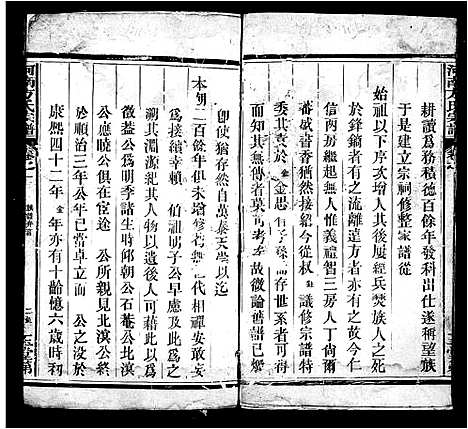 河南方氏宗譜
耕讀爲務積德百餘年發科出仕遂稱望族
于是建立宗祠修整家譜從
始祖以下序次增人其後屢經兵燹族人之死
於鋒鏑者有之流離遠方者亦有之故今仁
信两房繼起無人惟義禮智三房人丁尙爾
蕃盛書香猶然接紹今從权議修宗譜特
委其責於
金思
存世系者可得
其無傳者莫可考左故微論舊譜已燬
卽使猶存然自萬泰天學以迄
本朝二百餘年俱未增修
代相禪安敢妄
爲接續幸賴伯祖明子公早應及此爲之
溯其淵源紀其人物以遺後人可藉此以為
徵蓋公爲明季諸生時邱朝公石菴公北溟
公應曉公俱在宦途公所親見北溟公終
於順治三年公年已當卓立而
公之少
康熙四十二年金年亦有十齡憶六歲時初
河南方氏宗譜